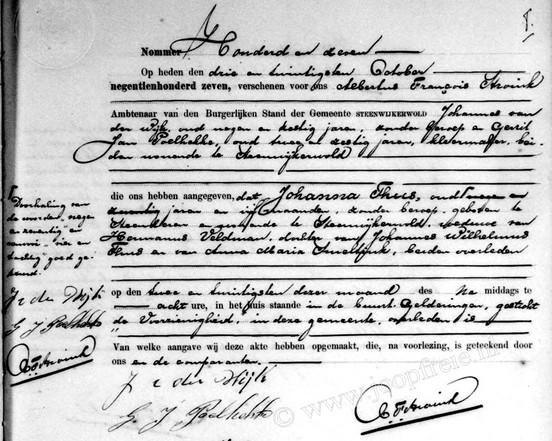 Nommer Honderd en zeven
Op heden den drie en twintigsten October
negentienhonderd zeven, verschenen voor ons Albertus François Stroink
Ambtenaar van den Burgerlijken Stand der Gemeente STEENWIJKERWOLD Johannes van
der Wijk, oud negen en zestig jaren, zonder beroep en Gerrit
Jan Poelhekke, oud twee en zestig jaren, kleermaker, bei-
den wonende te Steenwijkerwold
die ons hebben aangegeven, dat Johanna Thus, oud en
jaren en maanden, zonder beroep, geboren te
en wonende te Steenwijkerwold, weduwe van
Hermannus Veldman, dochter van Johannes Wilhelmus
Thus en van Anna Maria beiden overleden
op den twee en twintigsten dezer maand des Na middags te
acht ure, in het huis staande in de buurt Gelderingen, gesticht
de Voorzienigheid, in deze gemeente, overleden is
Van welke aangave wij deze akte hebben opgemaakt, die, na voorlezing, is geteekend door
ons en de comparanten.
J v der Wijk
G J Poelhekke
AFStroink
Doorhaling van
de woorden negen
en zeventig en
goedge-
keurd.
J v der Wijk
G J Poelhekke
AFStroink
© www.joopfreie.nl